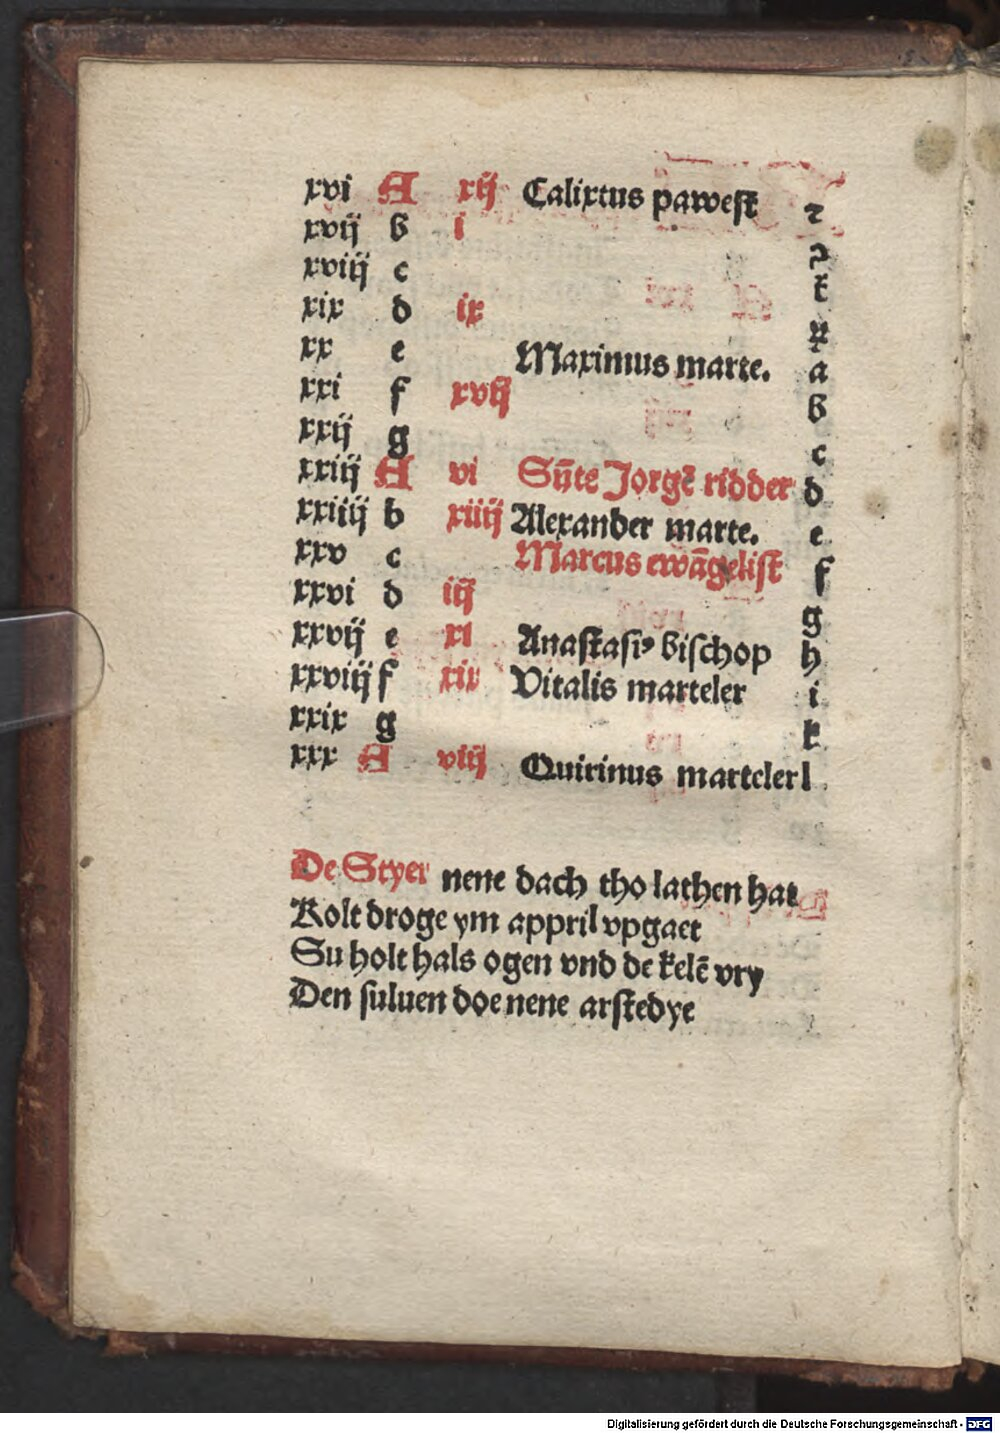 xvi A xij Calixtus pawest ꝛ
xvij b i ꝛ
xviij c ꝉ
xix d ix
xx e Maximus marte. a
xxi f xvij b
xxij g c
xxiij A vi Sūte Jorgē ridder d
xxiiij b xiiij Alexander marte. e
xxv c Marcus ewāgelist f
xxvi d iij g
xxvij e xi Anastasiꝰ bischop h
xxviij f xix Vitalis marteler i
xxix g k
xxx A viij Quirinus marteler l
De Styer nene dach tho lathen hat
Kolt droge ym appril vpgaet
Su holt hals ogen vnd de kelē vry
Den suluen doe nene arstedye
Digitalisierung gefördert durch die Deutsche Forschungsgemeinschaft - DFG